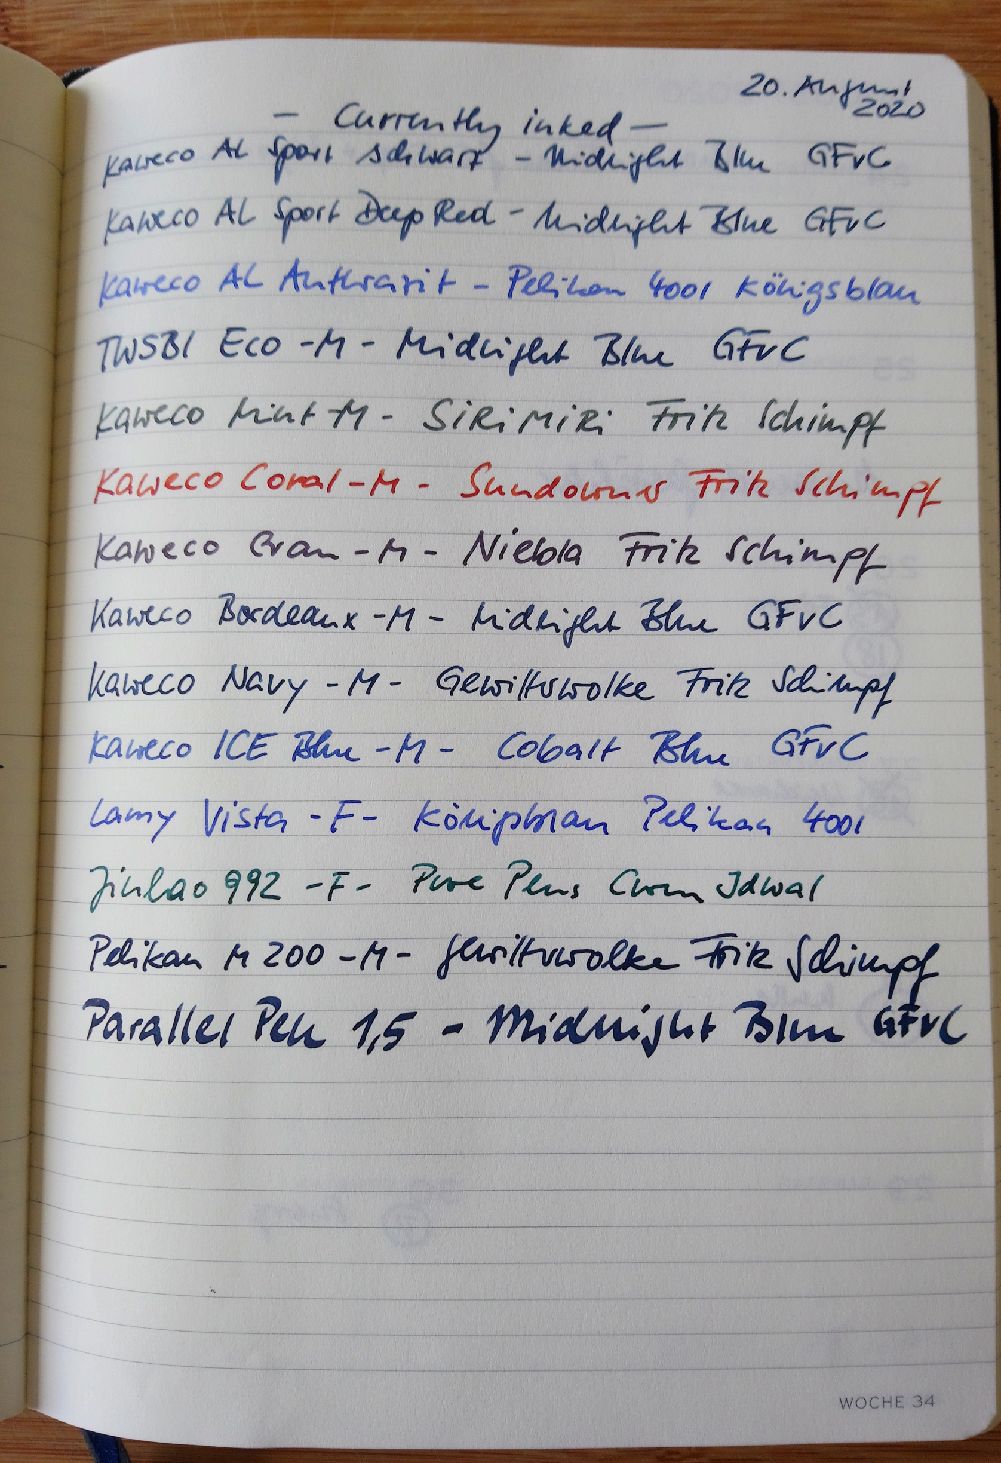 20. August
2020
- Currently inked -
Kaweco AL Sport schwarz - Midnight Blue GFvC
Kaweco AL Sport Deep Red - Midnight Blue GFvC
Kaweco AL Anthrazit - Pelikan 4001 Königsblau
TWSBI Eco - M - Midnight Blue GFvC
Kaweco Mint - M - SiRiMiRi Fritz Schimpf
Kaweco Coral - M - Sundowner Fritz Schimpf
Kaweco Gran - M - Niebla Fritz Schimpf
Kaweco Bordeaux - M - Midnight Blue GFvC
Kaweco Navy - M - Gewitterwolke Fritz Schimpf
Kaweco ICE Blue - M - Cobalt Blue GFvC
Lamy Vista - F - Königsblau Pelikan 4001
Jinhao 992 - F - Pure Pens Cwm Idwal
Pelikan M 200 - M - Gewitterwolke Fritz Schimpf
Parallel Pen 1,5 - Midnight Blue GFvC
WOCHE 34